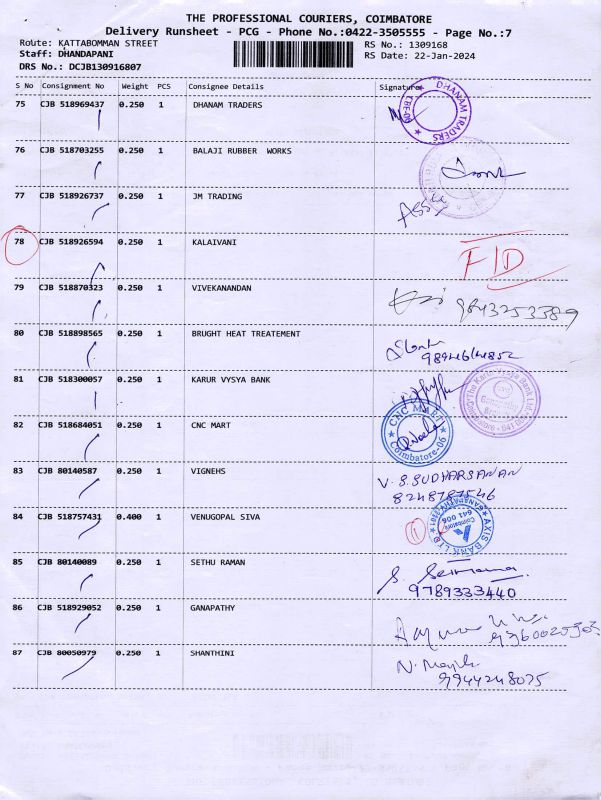 THE PROFESSIONAL COURIERS, COIMBATORE
Delivery Runsheet - PCG - Phone No.:0422-3505555 - Page No.:7
Route: KATTABOMMAN STREET RS No.: 1309168
Staff: DHANDAPANI RS Date: 22-Jan-2024
DRS No.: DCJB130916807
S No Consignment No Weight PCS Consignee Details Signature
75 CJB 518969437 0.250 1 DHANAM TRADERS
DHANAM TRADERS
76 CJB 518703255 0.250 1 BALAJI RUBBER WORKS
77 CJB 518926737 0.250 1 JM TRADING
78 CJB 518926594 0.250 1 KALAIVANI
F/D
79 CJB 518870323 0.250 1 VIVEKANANDAN
9843253389
80 CJB 518898565 0.250 1 BRUGHT HEAT TREATEMENT
81 CJB 518300057 0.250 1 KARUR VYSYA BANK
82 CJB 518684051 0.250 1 CNC MART
CNC MART
Coimbatore-06
83 CJB 80140587 0.250 1 VIGNEHS
V. S. SUDHARSANAN
8248787546
84 CJB 518757431 0.400 1 VENUGOPAL SIVA
AXIS BANK LTD
Coimbatore
641 006
85 CJB 80140089 0.250 1 SETHU RAMAN
9789333440
86 CJB 518929052 0.250 1 GANAPATHY
87 CJB 80050979 0.250 1 SHANTHINI
9944248075